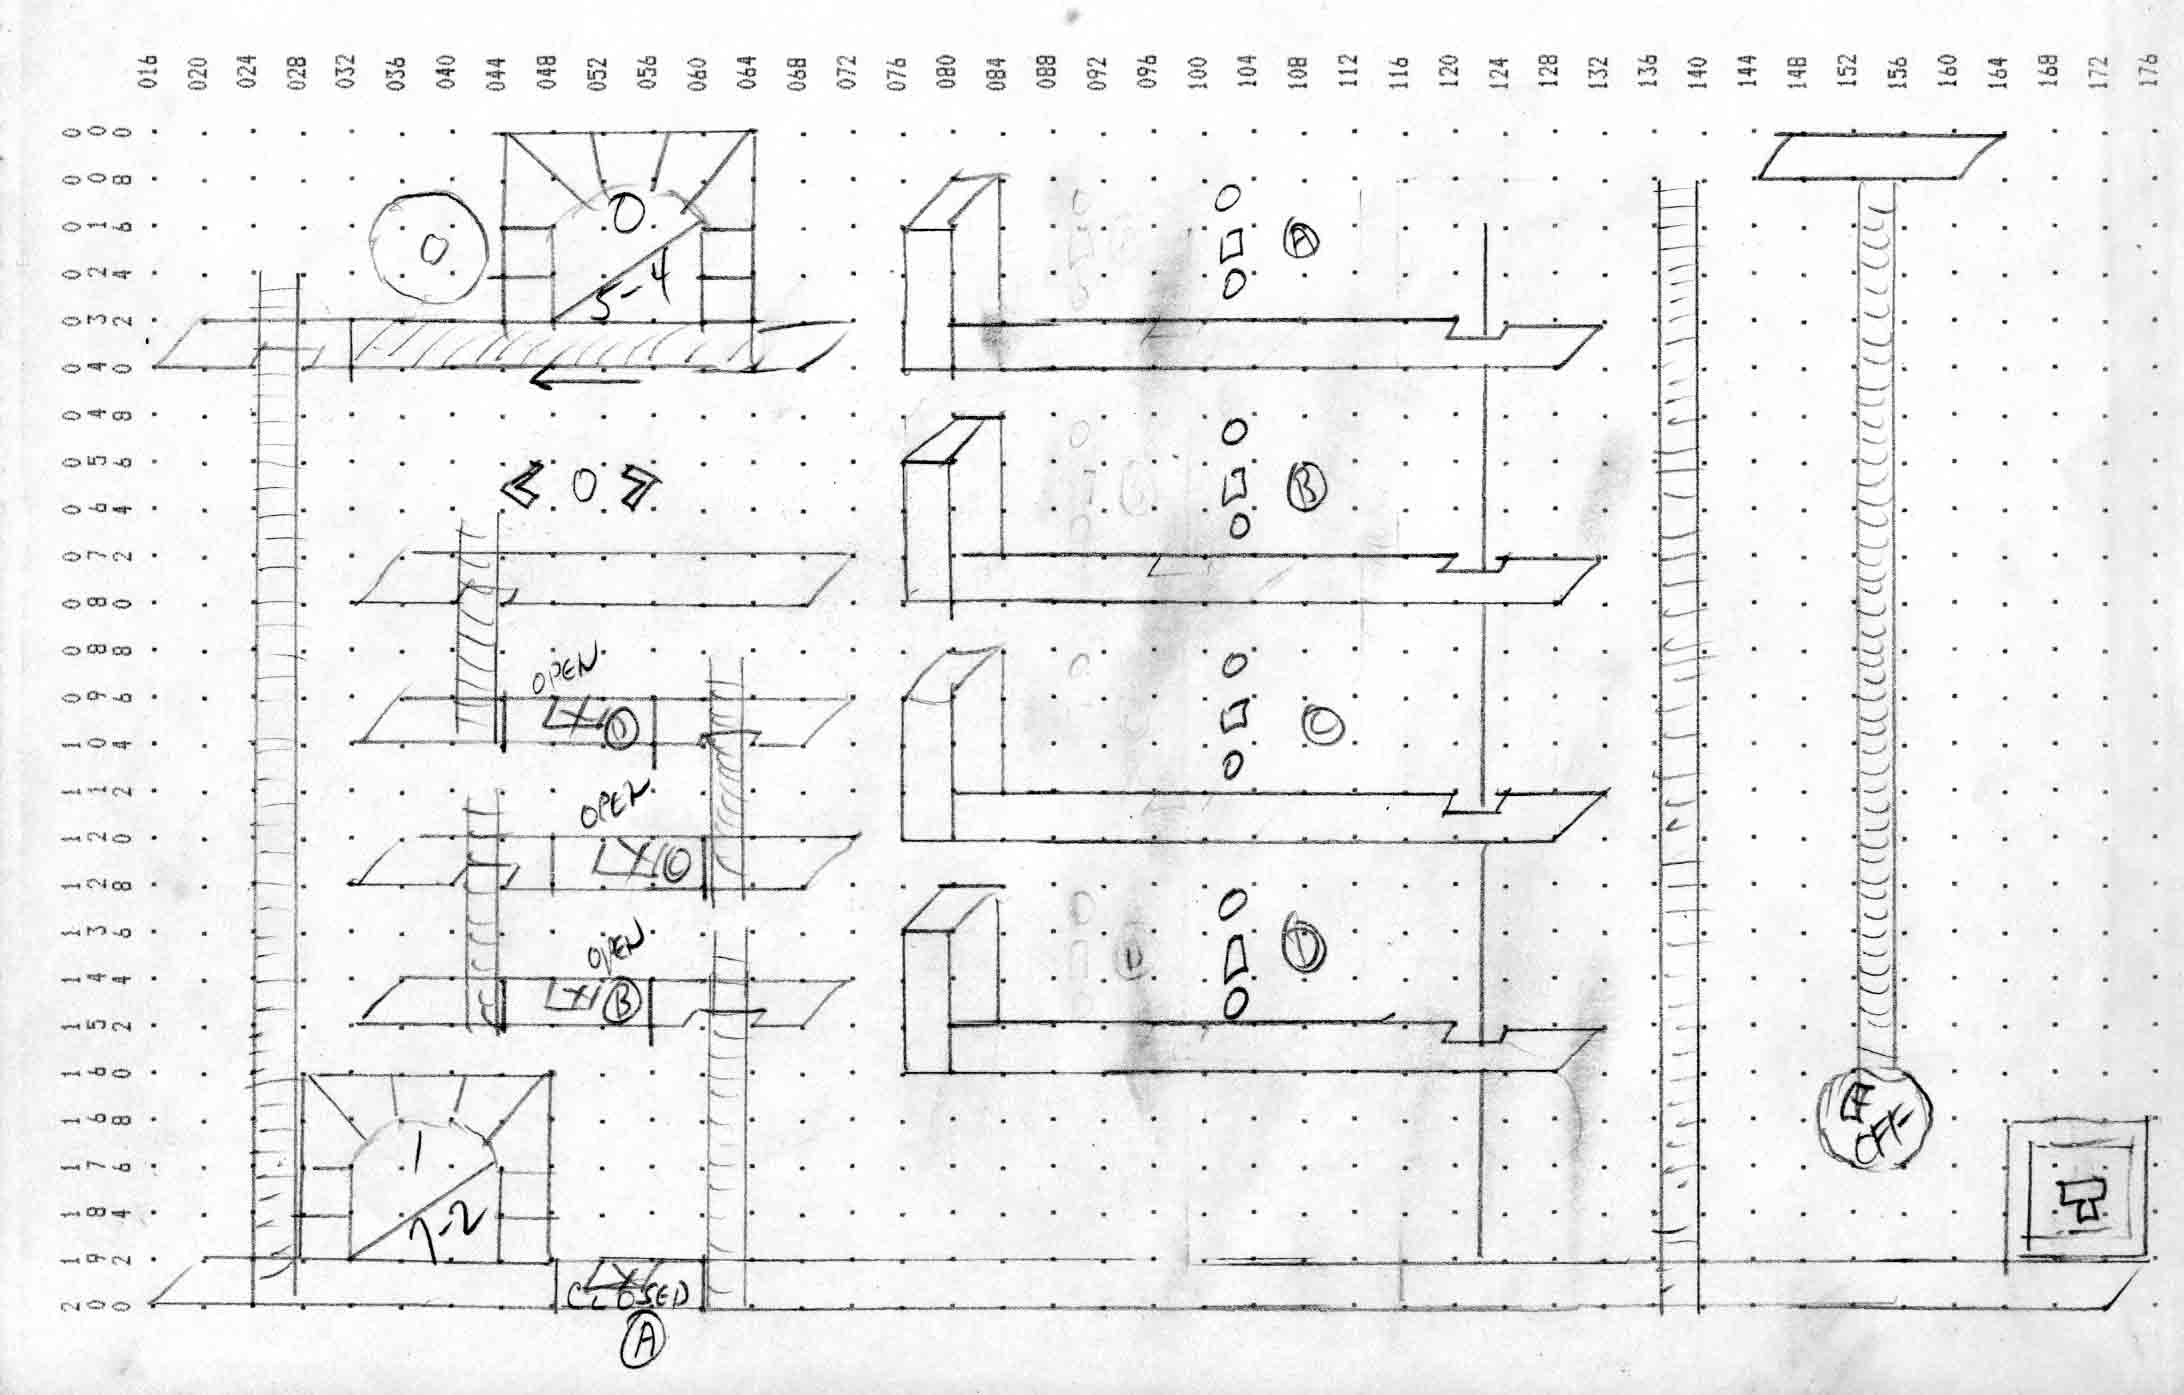 016 020 024 028 032 036 040 044 048 052 056 060 064 068 072 076 080 084 088 092 096 100 104 108 112 116 120 124 128 132 136 140 144 148 152 156 160 164 168 172 176
000
008
016
024
032
040
048
056
064
072
080
088
096
104
112
120
128
136
144
152
160
168
176
184
192
200
0
0
5-4
A
0
B
OPEN
D
C
OPEN
C
OPEN
B
D
OFF
1
7-2
CLOSED
A